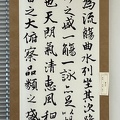 為流觴曲水列坐其次雖
之盛一觴一詠亦足以
也天朗氣清惠風和
之大俯察品類之盛